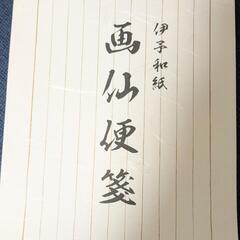 伊予和紙
画仙便箋